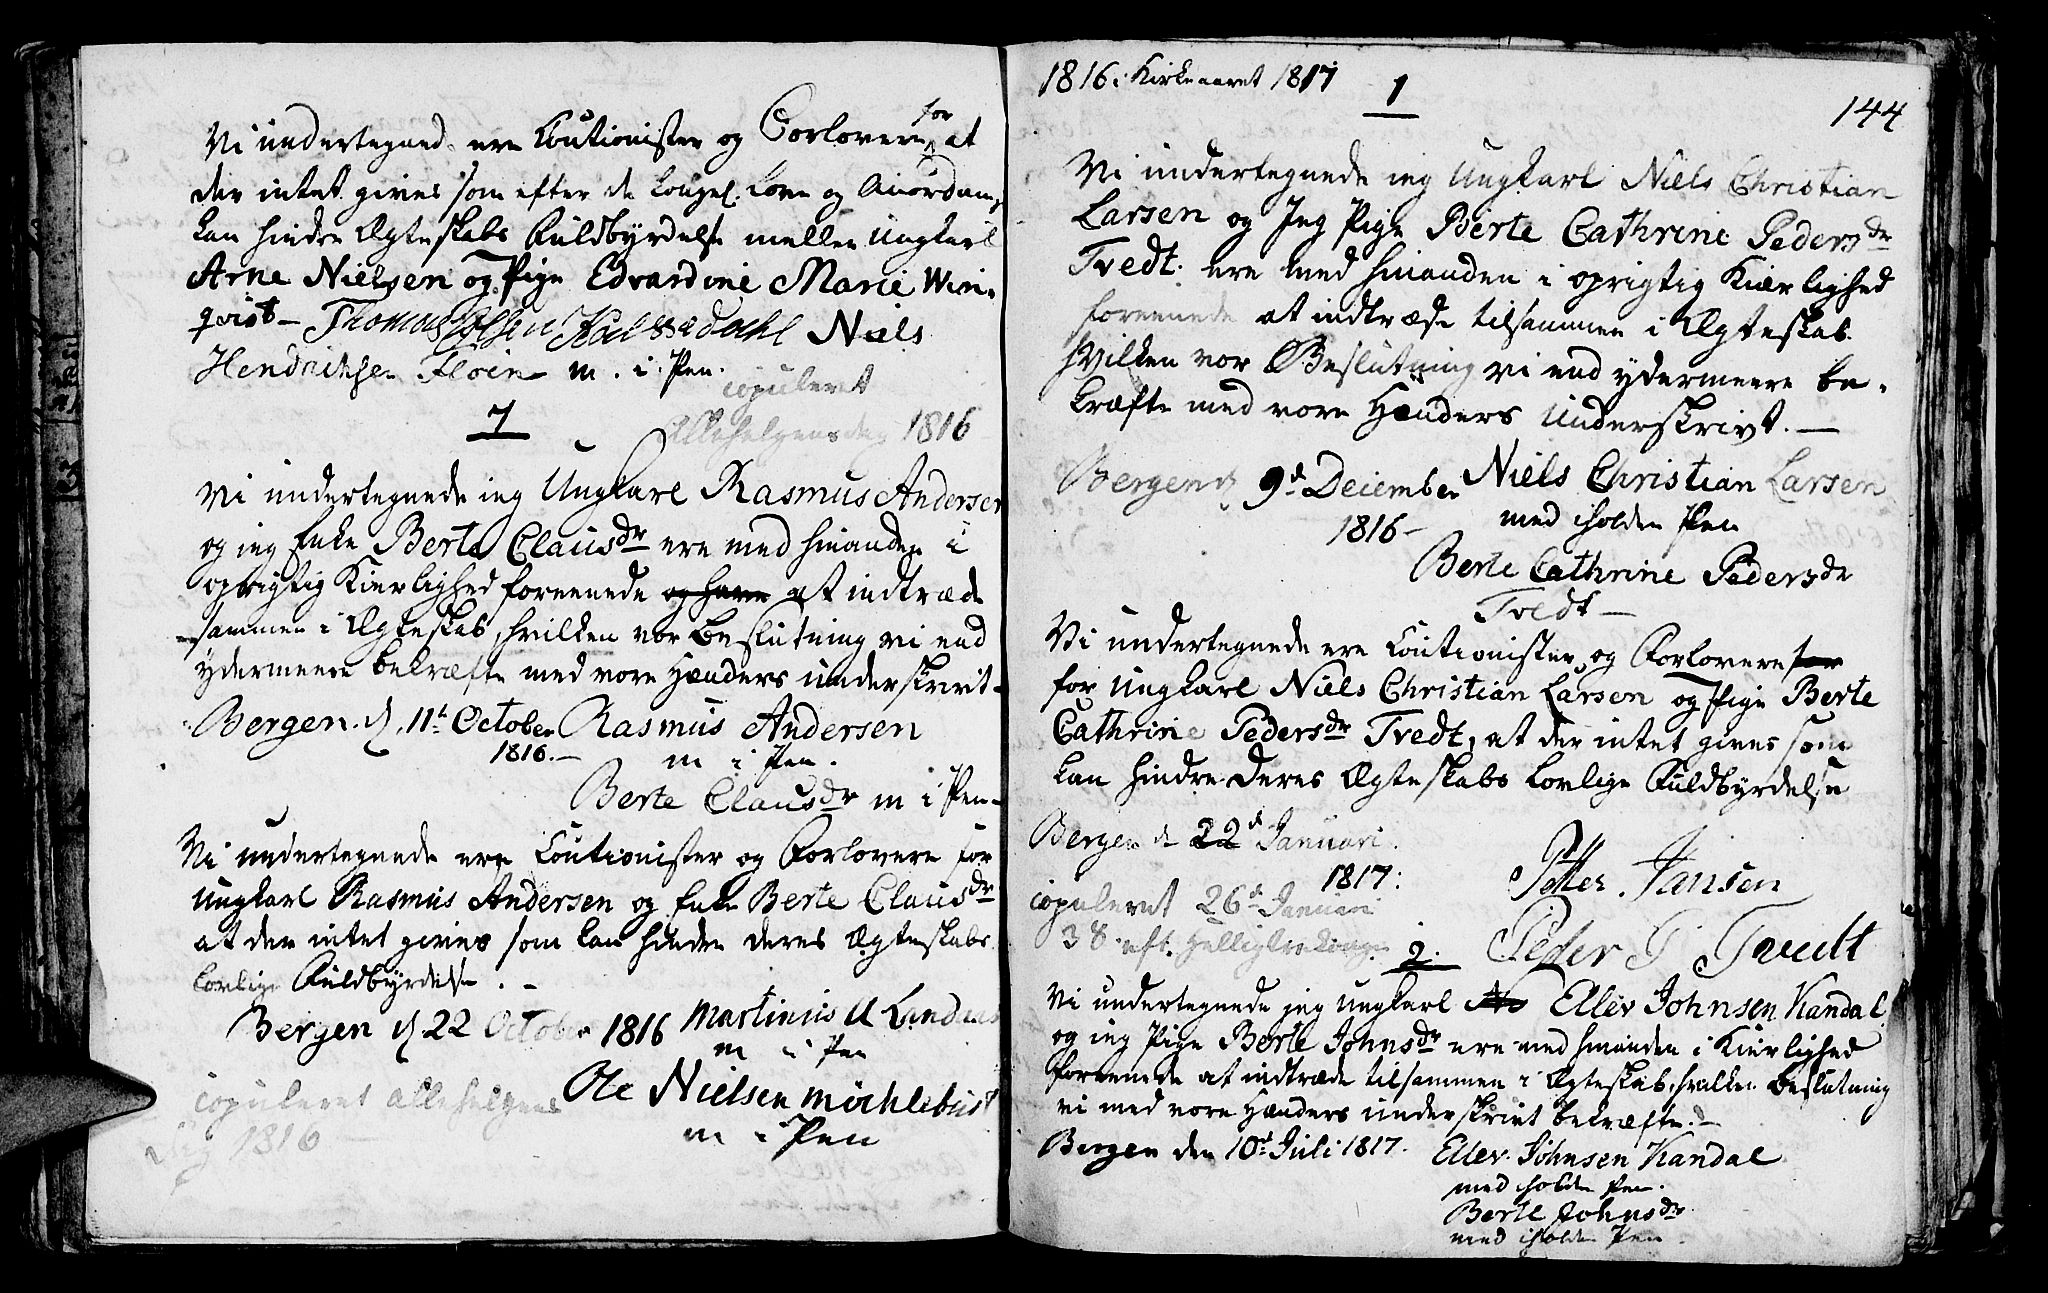 for
Vi undertegned. ere Coutionister og Forlovere at
der intet gives som efter de kongel. Love og Anordn.
kan hindre Ægteskabs Fuldbyrdelse mellem Ungkarl
Arne Nielsen og Pige Edvardine Marie Win-
qvist- Thomas Olsen Kalsdahl Niels
Hendrichsen Fløien m. i. Pen.
copuleret
Allehelgensdag 1816
7
Vi undertegnede ieg Ungkarl Rasmus Andersen
og ieg Enke Berte Clausdr ere med hinanden i
oprigtig Kierlighed foreenede og have at indtræde
sammen i Ægteskab, hvilken vor Beslutning vi end
ydermeere bekræfte med vore Hænders underskrivt-
Bergen d. 11t October Rasmus Andersen
1816.- m i Pen.
Berte Clausdr m i Pen-
Vi undertegnede ere Coutionister og Forlovere for
Ungkarl Rasmus Andersen og Enke Berte Clausdr
at der intet gives som kan hindre deres Ægteskabs
lovlige Fuldbyrdelse. -
Bergen d 22 October 1816 Martinus A Landaas
m i Pen
Ole Nielsen Möchlebust
copuleret allehelgens
m i Pen
dag 1816
1816 i Kirkeaaret 1817
1
144
Vi undertegnede ieg Ungkarl Niels Christian
Larsen og Jeg Pige Berte Cathrine Pedersdr
Tvedt. ere med hinanden i oprigtig Kiærlighed
foreenede at indtræde tilsammen i Ægteskab.
hvilken vor Beslutning vi end ydermeere be-
kræfte med vore Hænders Underskrivt. -
Bergen d. 9d December Niels Christian Larsen
1816- med iholden Pen
Berte Cathrine Pedersdr
Tvedt-
Vi undertegnede ere Coutionister og Forlovere for
for Ungkarl Niels Christian Larsen og Pige Berte
Cathrine Pedersdr Tvedt, at der intet gives som
kan hindre deres Ægteskabs lovlige Fuldbyrdelse
Bergen d 22d Januari.
1817: Petter Jansen
copuleret 26d Januari
38 eft. Helligtrekonge Peder J Tvedt
2.
Vi undertegnede jeg Ungkarl Elles Johnsen Kandal
og ieg Pige Berte Johnsdr ere med hinanden i Kierlighed
foreenede at indtræde tilsammen i Ægteskab, hvilken Beslutning
vi med vore Hænders underskrivt bekræfte. -
Bergen den 10d Juli 1817. Elles Johnsen Kandal
med iholden Pen.
Berte Johnsdr
med iholden Pen.